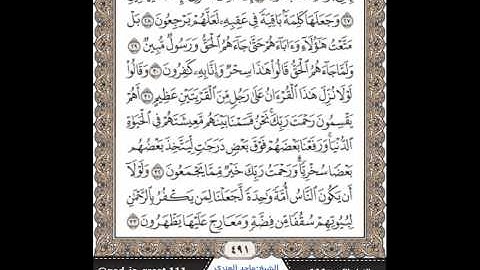 وَجَعَلَهَا كَلِمَةً بَاقِيَةً فِي عَقِبِهِ لَعَلَّهُمْ يَرْجِعُونَ ٢٨ بَلْ
مَتَّعْتُ هَٰؤُلَاءِ وَءَابَاءَهُمْ حَتَّىٰ جَاءَهُمُ الْحَقُّ وَرَسُولٌ مُّبِينٌ ٢٩
وَلَمَّا جَاءَهُمُ الْحَقُّ قَالُوا هَٰذَا سِحْرٌ وَإِنَّا بِهِ كَٰفِرُونَ ٣٠ وَقَالُوا
لَوْلَا نُزِّلَ هَٰذَا الْقُرْءَانُ عَلَىٰ رَجُلٍ مِّنَ الْقَرْيَتَيْنِ عَظِيمٍ ٣١ أَهُمْ
يَقْسِمُونَ رَحْمَتَ رَبِّكَ نَحْنُ قَسَمْنَا بَيْنَهُم مَّعِيشَتَهُمْ فِي الْحَيَوٰةِ
الدُّنْيَا وَرَفَعْنَا بَعْضَهُمْ فَوْقَ بَعْضٍ دَرَجَٰتٍ لِّيَتَّخِذَ بَعْضُهُم
بَعْضًا سُخْرِيًّا وَرَحْمَتُ رَبِّكَ خَيْرٌ مِّمَّا يَجْمَعُونَ ٣٢ وَلَوْلَا
أَن يَكُونَ النَّاسُ أُمَّةً وَٰحِدَةً لَّجَعَلْنَا لِمَن يَكْفُرُ بِالرَّحْمَٰنِ
لِبُيُوتِهِمْ سُقُفًا مِّن فِضَّةٍ وَمَعَارِجَ عَلَيْهَا يَظْهَرُونَ ٣٣
٤٩١